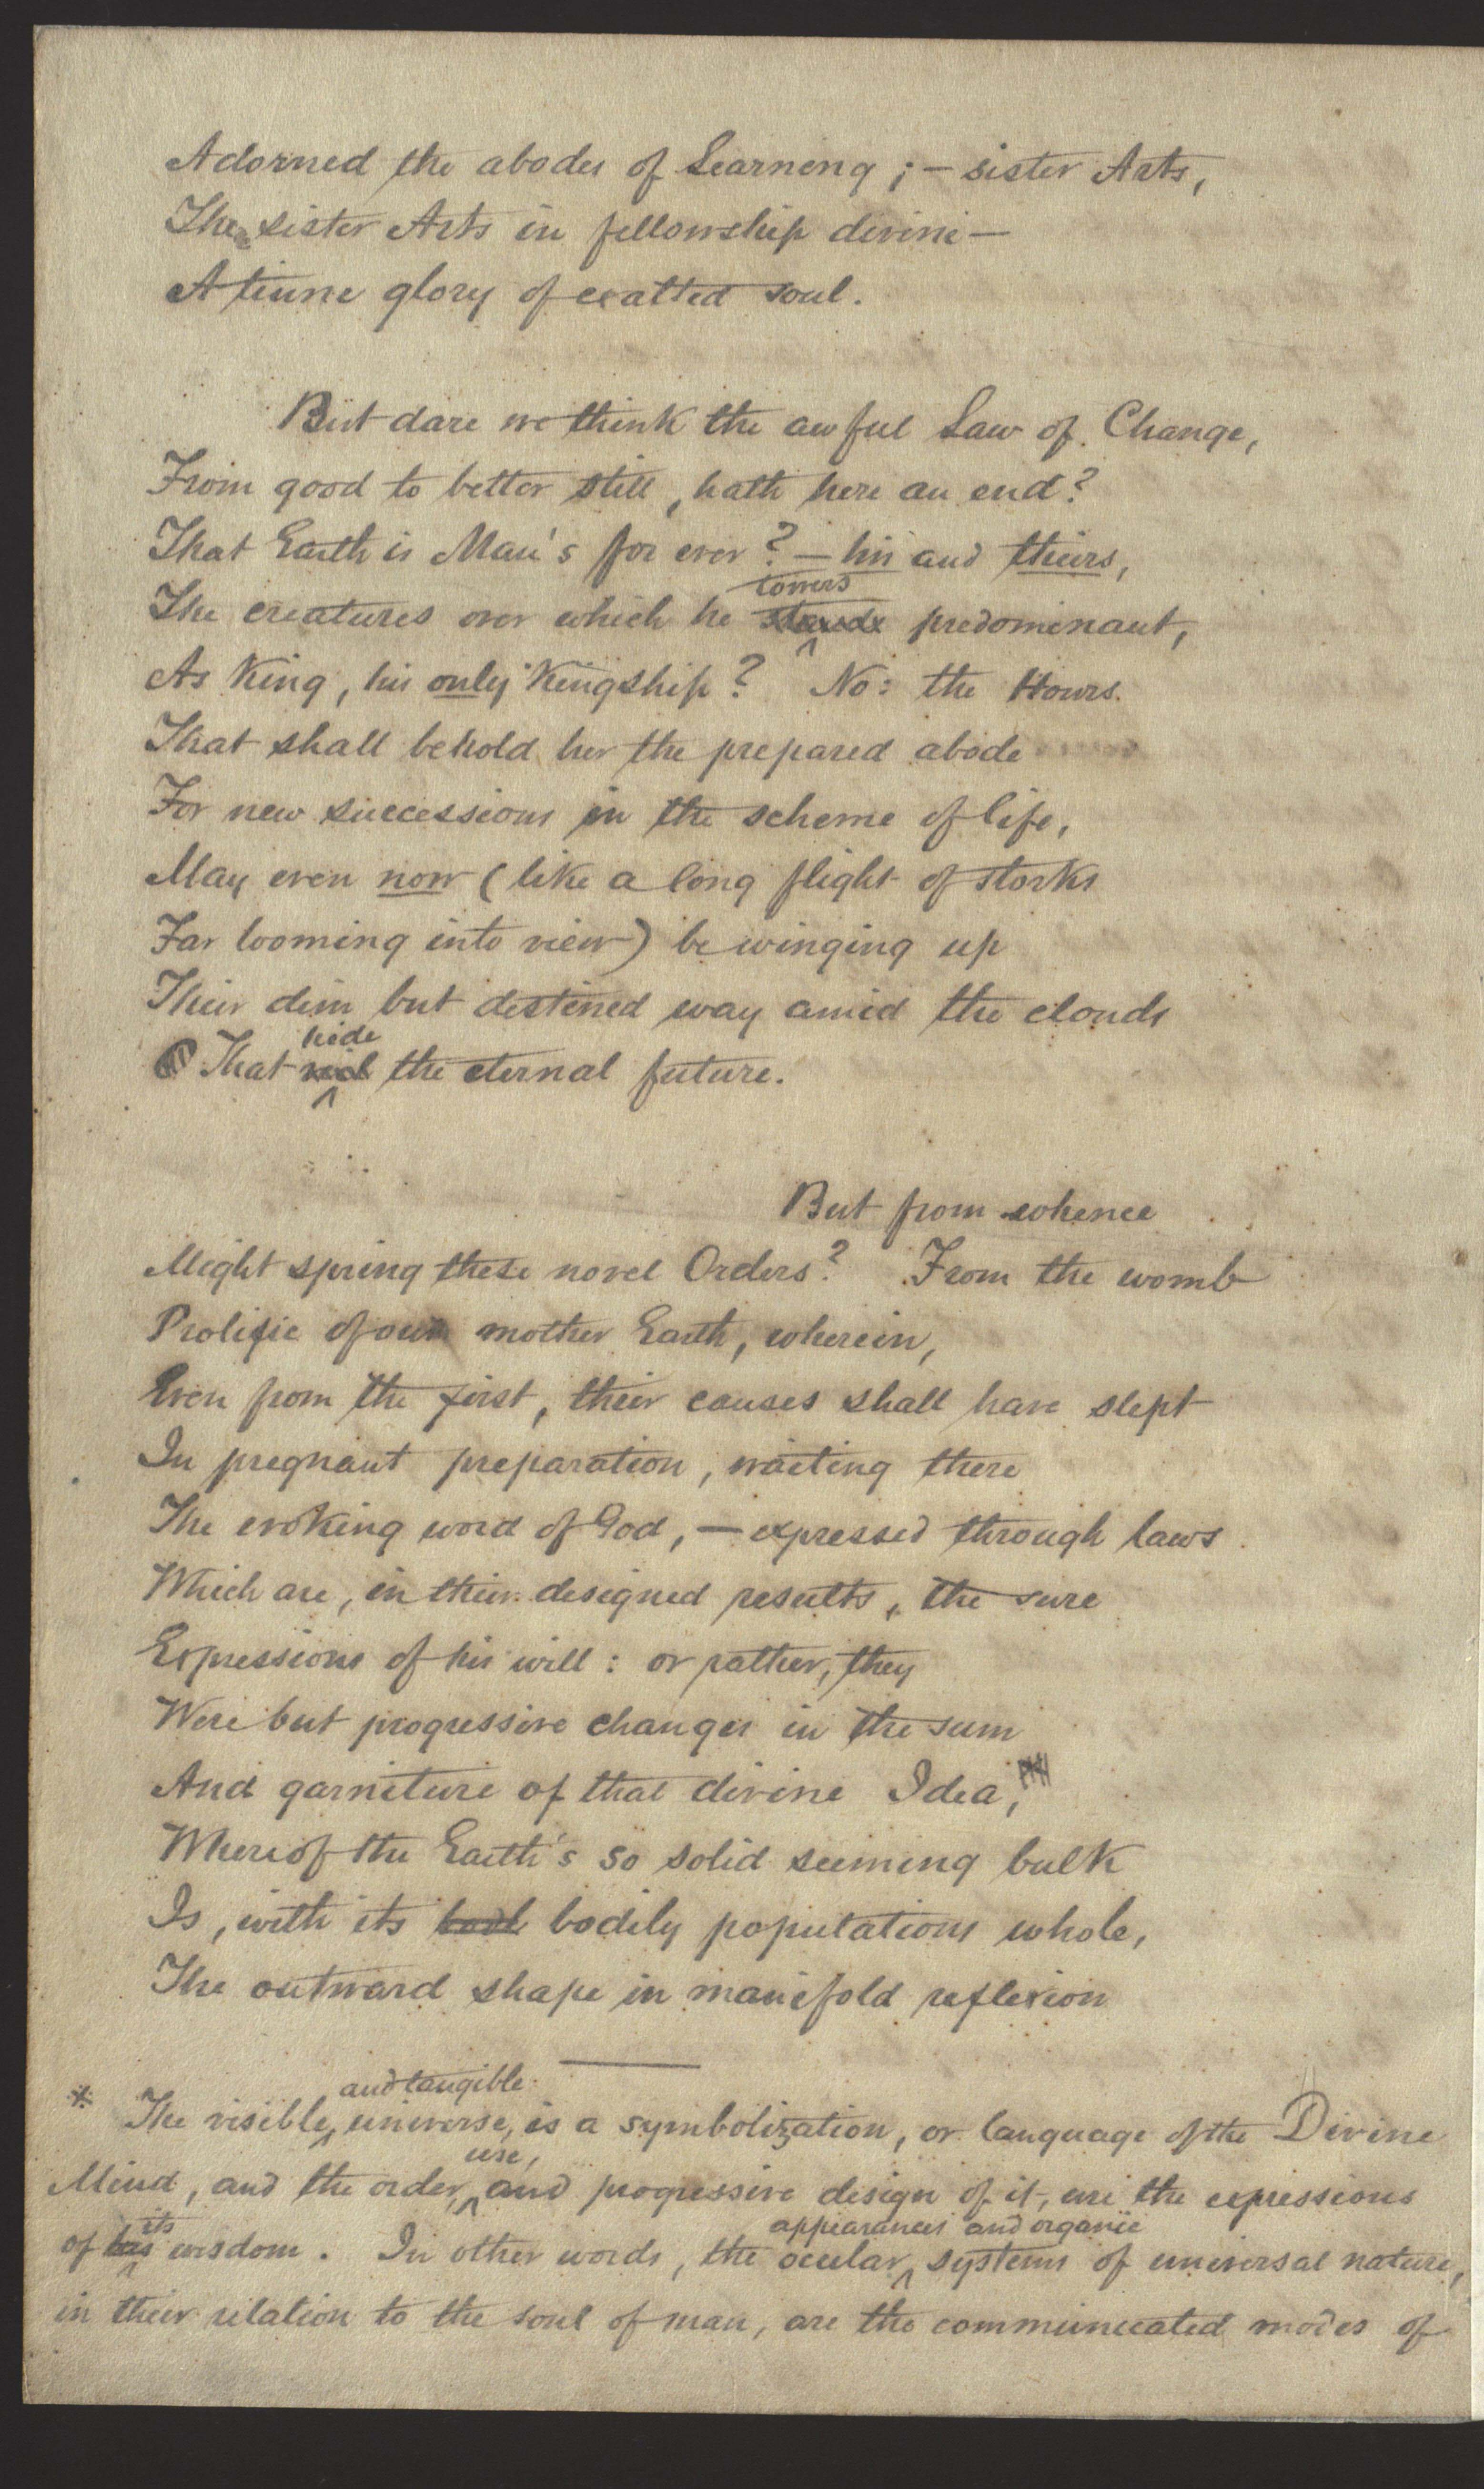 Adorned the abodes of Learning; — sister Arts,
The sister Arts in fellowship divine —
A triune glory of exalted soul.
But dare we think the awful Law of Change,
From good to better still, hath here an end?
That Earth is Man's for ever? — his and theirs,
towers
The creatures over which he stands predominant,
As King, his only Kingship? No: the Hours
That shall behold her the prepared abode
For new successions in the scheme of life,
May even now (like a long flight of storks
Far looming into view) be winging up
Their dim but destined way amid the clouds
hide
That the eternal future.
But from whence
Might spring these novel Orders? From the womb
Prolific of our mother Earth, wherein,
Even from the first, their causes shall have slept
In pregnant preparation, waiting there
The evoking word of God, — expressed through laws
Which are, in their designed results, the sure
Expressions of his will: or rather, they
Were but progressive changes in the sum
And garniture of that divine Idea,
Whereof the Earth's so solid seeming bulk
Is, with its bodily populations whole,
The outward shape in manifold reflexion
and tangible
* The visible universe, is a symbolization, or language of the Divine
use,
Mind, and the order, and progressive design of it, are the expressions
its appearances and organic
of his wisdom. In other words, the ocular systems of universal nature,
in their relation to the soul of man, are the communicated modes of